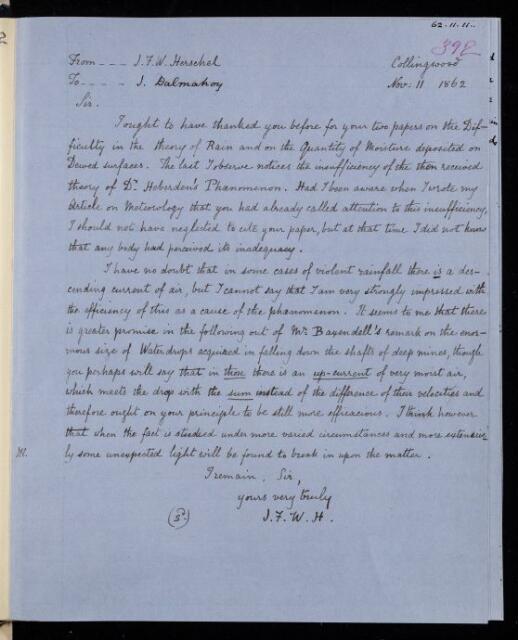 62.11.11.
392
From --- J.F.W. Herschel Collingwood
To ---- J. Dalmahoy Nov: 11 1862
Sir.
I ought to have thanked you before for your two papers on the Dif-
ficulty in the theory of Rain and on the Quantity of Moisture deposited on
Dewed surfaces. The last I observe notices the insufficiency of the then received
theory of Dr. Heberden's Phænomenon. Had I been aware when I wrote my
Article on Meteorology that you had already called attention to this insufficiency,
I should not have neglected to cite your paper, but at that time I did not know
that any body had perceived its inadequacy.
I have no doubt that in some cases of violent rainfall there is a des-
cending current of air, but I cannot say that I am very strongly impressed with
the efficiency of this as a cause of the phænomenon. It seems to me that there
is greater promise in the following out of Mr. Baxendell's remark on the enor-
mous size of Waterdrops acquired in falling down the shafts of deep mines, though
you perhaps will say that in these there is an up-current of very moist air,
which meets the drop with the sum instead of the difference of their velocities and
therefore ought on your principle to be still more efficacious. I think however
that when the fact is studied under more varied circumstances and more extensive
ly some unexpected light will be found to break in upon the matter.
I remain, Sir,
yours very truly
J. F. W. H.